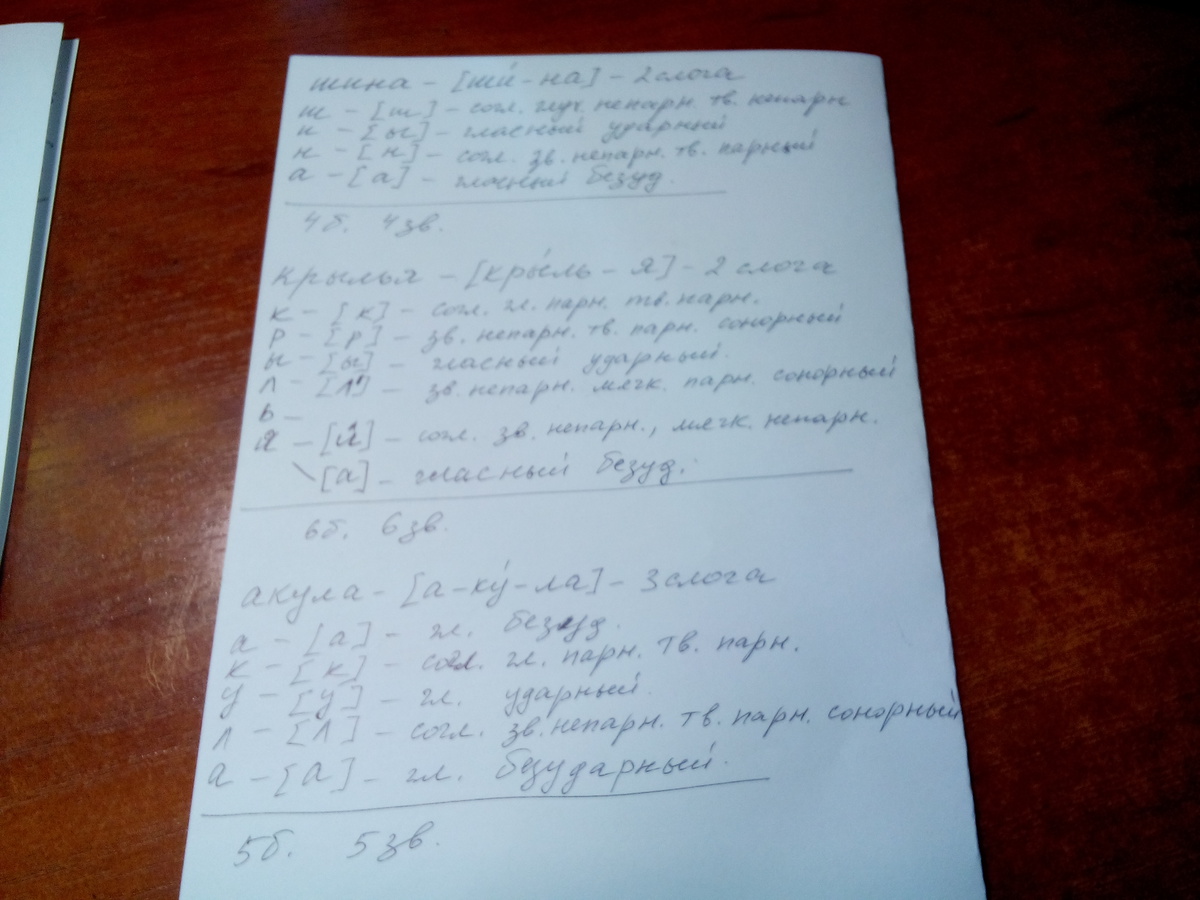 шина – [ши́-на] – 2 слога
ш – [ш] – согл. глух. непарн. тв. непарн
и – [ы] – гласный ударный
н – [н] – согл. зв. непарн. тв. парный
а – [а] – гласный безуд.
4б. 4зв.
крылья – [кры́ль – я] – 2 слога
к – [к] – согл. гл. парн. тв. парн.
р – [р] – зв. непарн. тв. парн. сонорный
ы – [ы] – гласный ударный.
л – [л'] – зв. непарн. мягк. парн. сонорный
ь –
я – [й] – согл. зв. непарн., мягк. непарн.
\[а] – гласный безуд.
6б. 6зв.
акула – [а-ку́-ла] – 3 слога
а – [а] – гл. безуд.
к – [к] – согл. гл. парн. тв. парн.
у – [у] – гл. ударный.
л – [л] – согл. зв. непарн. тв. парн. сонорный
а – [а] – гл. безударный.
5б. 5зв.